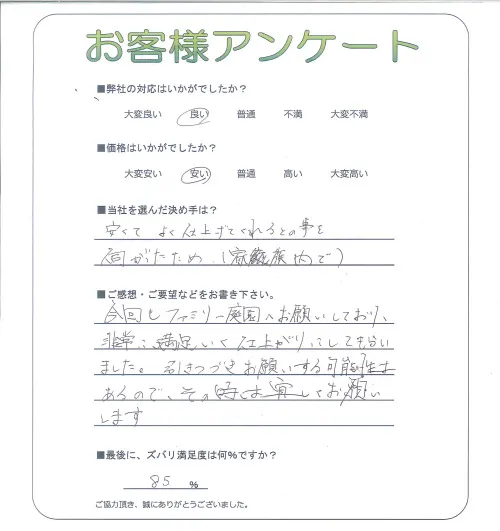 お客様アンケート
■弊社の対応はいかがでしたか？
大変良い 良い 普通 不満 大変不満
■価格はいかがでしたか？
大変安い 安い 普通 高い 大変高い
■当社を選んだ決め手は？
安くて よく仕上げてくれるとの事を
伺がたため、（家族内で）
■ご感想・ご要望などをお書き下さい。
今回もファミリー庭園へお願いしており、
非常に満足いく仕上がりにしてもらい
ました。引きつづきお願いする可能性は
あるので、その時は宜しくお願い
します
■最後に、ズバリ満足度は何%ですか？
85 %
ご協力頂き、誠にありがとうございました。